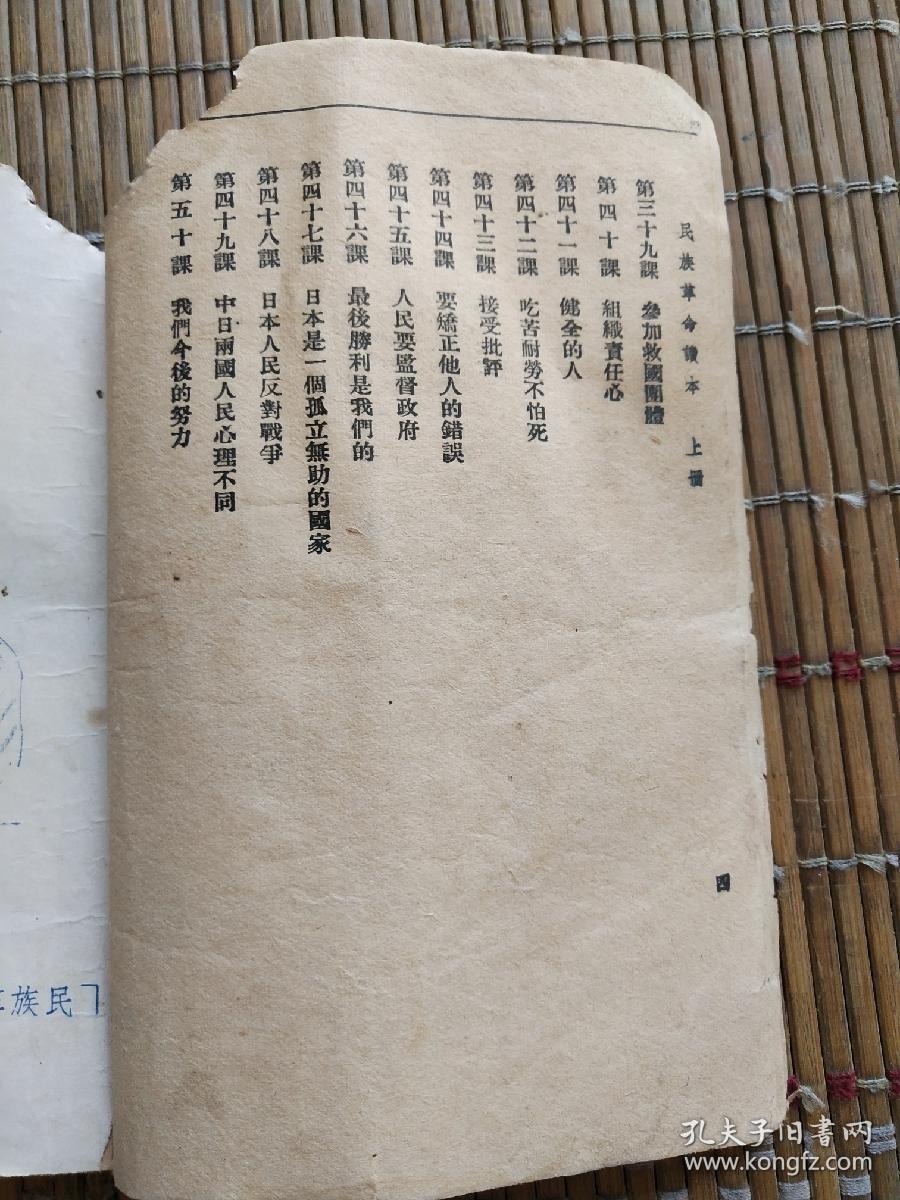 民族革命讀本 上冊
第三十九課 參加救國團體
第四十課 組織責任心
第四十一課 健全的人
第四十二課 吃苦耐勞不怕死
第四十三課 接受批評
第四十四課 要矯正他人的錯誤
第四十五課 人民要監督政府
第四十六課 最後勝利是我們的
第四十七課 日本是一個孤立無助的國家
第四十八課 日本人民反對戰爭
第四十九課 中日兩國人民心理不同
第五十課 我們今後的努力
四
族民
孔夫子旧书网
www.kongfz.com